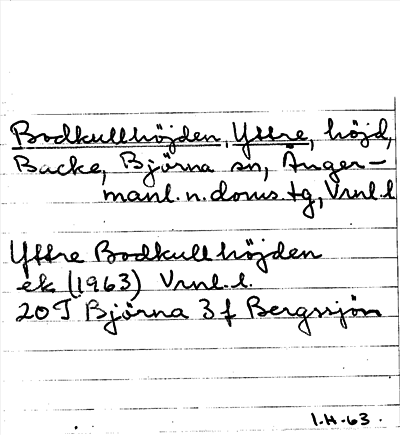 Bodkullhöjden, Yttre, höjd,
Backe, Björna sn, Ånger-
manl. n. doms. tg, Vrnl. l
Yttre Bodkullhöjden
ek (1963) Vrnl. l.
20J Björna 3 f Bergssjön
1.H.63.